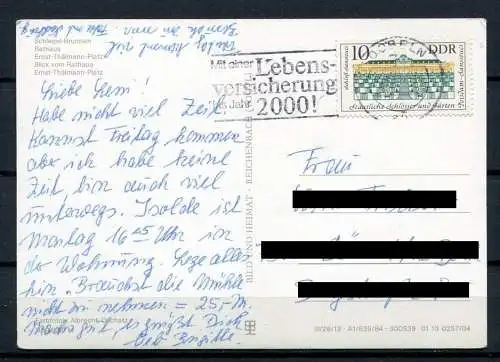 Schlegel-Brunnen
Rathaus
Ernst-Thälmann-Platz
Blick vom Rathaus
Ernst-Thälmann-Platz
Liebe Leni!
Habe nicht viel Zeit.
Kannst Freitag kommen
aber ich habe keine
Zeit bin auch viel
unterwegs. Isolde ist
Montag 16 45 Uhr in
der Wohnung. Lege alles
hin. Brauchst die Mühle
nicht zu nehmen = 25,- M.
Machs gut, es grüßt Dich
Brigitte
DÖBELN
Mit einer
Lebens-
versicherung
ins Jahr
2000!
10 DDR
Staatliche Schlösser und Gärten
Potsdam-Sanssouci
BILD UND HEIMAT · REICHENBACH
Frau
A1/639/84
300539 01 13 0257/04